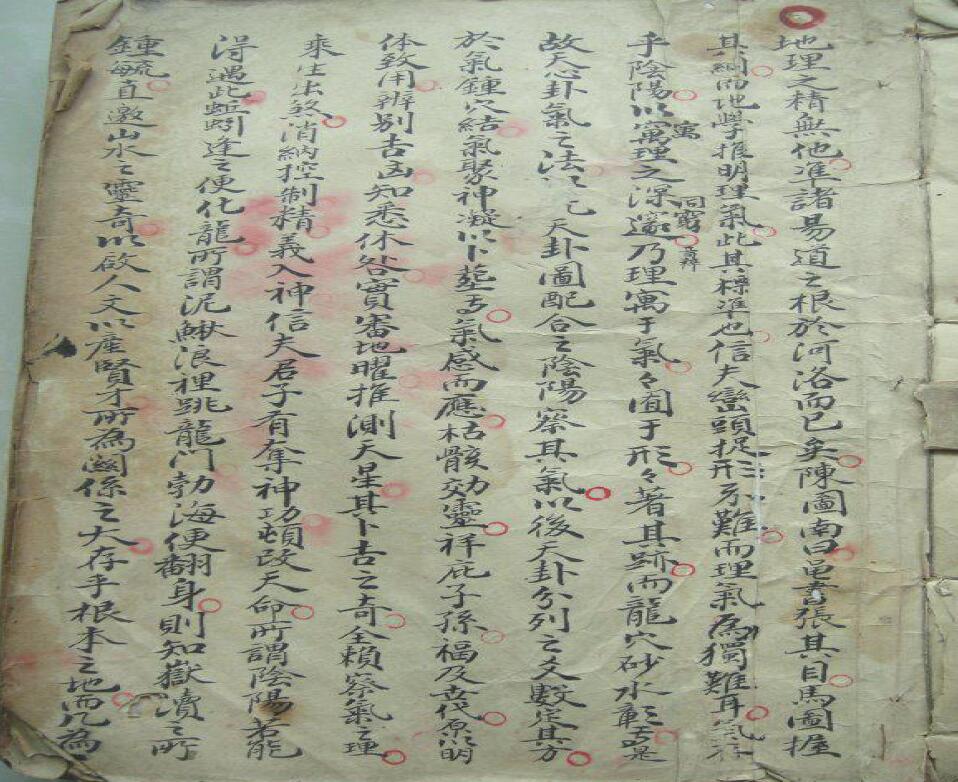 地理之精無他准諸易道之根於河洛而已矣陳圖南曰邑書張其目馬圖握
其綱而地學推明理氣此其標準也信夫巒頭捉形不難而理氣為獨難耳氣行
乎陰陽以寓理之深邃乃理寓于氣々囿于形々著其跡而龍穴砂水彰焉是
寓
同
故天心卦氣之法以先天卦圖配合之陰陽察其氣以後天卦分列之爻數定其方
於氣鍾穴結氣聚神凝以卜塟焉氣感而應枯骸効靈祥庇子孫福及世代原以明
体致用辨别吉凶知悉休咎實審地曜推測天星其卜吉之奇全賴察氣之理
來生出煞消納控制精義入神信夫君子有奪神功頓改天命所謂陰陽若能
淂遇此蚯蚓逢之便化龍所謂泥鰍浪裡跳龍門勃海便翻身則知嶽瀆之所
鍾毓直邀山水之靈奇以啟人文以產賢才所為關係之大存乎根本之地而凡為